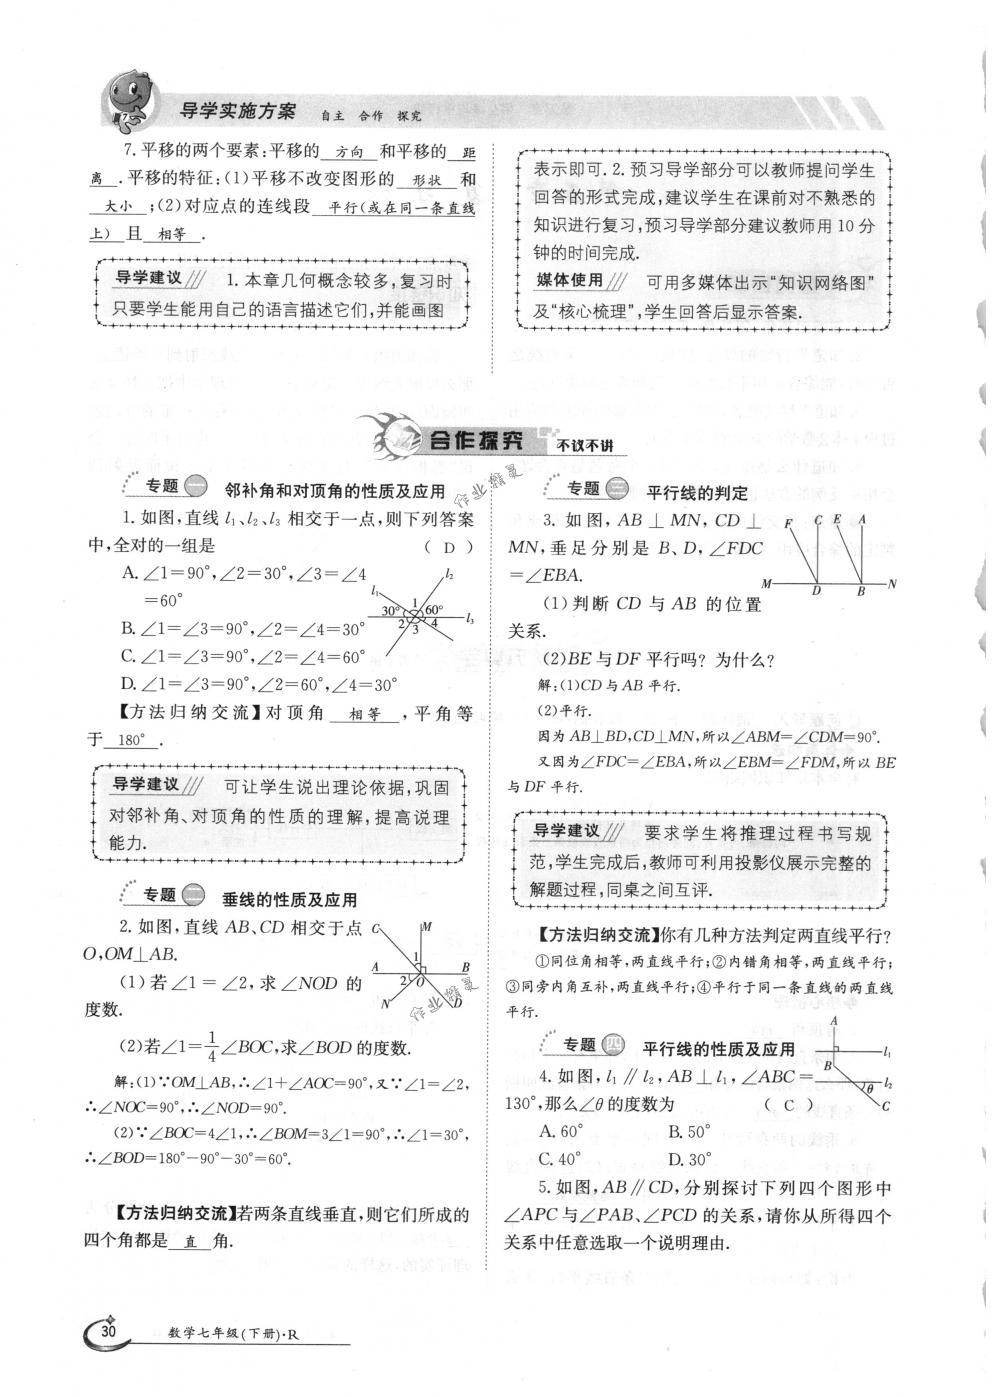 导学实施方案 自主 合作 探究
7.平移的两个要素:平移的 方向 和平移的 距
离 .平移的特征:(1)平移不改变图形的 形状 和
大小 ;(2)对应点的连线段 平行(或在同一条直线
上) 且 相等 .
导学建议/// 1.本章几何概念较多,复习时
只要学生能用自己的语言描述它们,并能画图
表示即可.2.预习导学部分可以教师提问学生
回答的形式完成,建议学生在课前对不熟悉的
知识进行复习,预习导学部分建议教师用 10 分
钟的时间完成.
媒体使用/// 可用多媒体出示“知识网络图”
及“核心梳理”,学生回答后显示答案.
合作探究 不议不讲
专题一 邻补角和对顶角的性质及应用
1.如图,直线 l₁、l₂、l₃ 相交于一点,则下列答案
中,全对的一组是 ( D )
A.∠1=90°,∠2=30°,∠3=∠4
=60°
B.∠1=∠3=90°,∠2=∠4=30°
C.∠1=∠3=90°,∠2=∠4=60°
D.∠1=∠3=90°,∠2=60°,∠4=30°
l₁ l₂ l₃ 30° 1 60° 2 3 4
【方法归纳交流】对顶角 相等 ,平角等
于 180° .
导学建议/// 可让学生说出理论依据,巩固
对邻补角、对顶角的性质的理解,提高说理
能力.
专题二 垂线的性质及应用
2.如图,直线 AB、CD 相交于点
O,OM⊥AB.
(1)若∠1=∠2,求∠NOD 的
度数.
C M A 1 B 2 O N D
(2)若∠1=1/4∠BOC,求∠BOD 的度数.
解:(1)∵OM⊥AB,∴∠1+∠AOC=90°,又∵∠1=∠2,
∴∠NOC=90°,∴∠NOD=90°.
(2)∵∠BOC=4∠1,∴∠BOM=3∠1=90°,∴∠1=30°,
∴∠BOD=180°-90°-30°=60°.
【方法归纳交流】若两条直线垂直,则它们所成的
四个角都是 直 角.
专题三 平行线的判定
3.如图,AB⊥MN,CD⊥
MN,垂足分别是 B、D,∠FDC
=∠EBA.
(1)判断 CD 与 AB 的位置
关系.
F C E A M D B N
(2)BE 与 DF 平行吗?为什么?
解:(1)CD 与 AB 平行.
(2)平行.
因为 AB⊥BD,CD⊥MN,所以∠ABM=∠CDM=90°.
又因为∠FDC=∠EBA,所以∠EBM=∠FDM,所以 BE
与 DF 平行.
导学建议/// 要求学生将推理过程书写规
范,学生完成后,教师可利用投影仪展示完整的
解题过程,同桌之间互评.
【方法归纳交流】你有几种方法判定两直线平行?
①同位角相等,两直线平行;②内错角相等,两直线平行;
③同旁内角互补,两直线平行;④平行于同一条直线的两直线
平行.
专题四 平行线的性质及应用
4.如图,l₁∥l₂,AB⊥l₁,∠ABC=
130°,那么∠θ 的度数为 ( C )
A l₁ B l₂ θ C
A.60° B.50°
C.40° D.30°
5.如图,AB∥CD,分别探讨下列四个图形中
∠APC 与∠PAB、∠PCD 的关系,请你从所得四个
关系中任意选取一个说明理由.
作业精灵
作业精灵
30 数学七年级(下册)·R